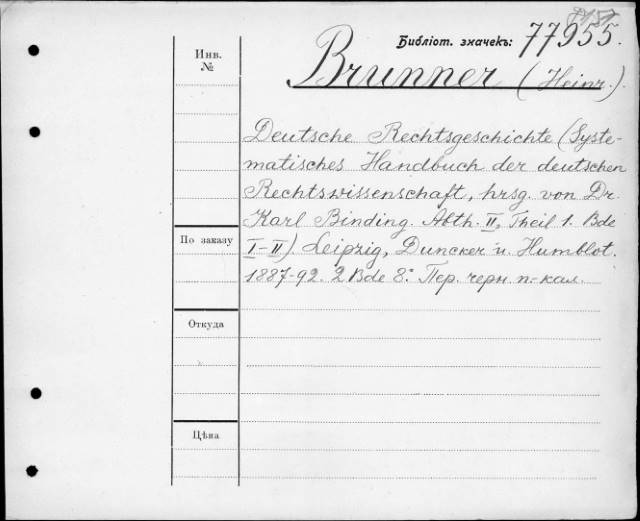 Библіот. значекъ: 77955.
Инв.
№
Brunner (Heinr.).
Deutsche Rechtsgeschichte (Syste-
matisches Handbuch der deutschen
Rechtswissenschaft, hrsg. von Dr.
Karl Binding. Abth. II, Theil 1. Bde
По заказу
I-II). Leipzig, Duncker u. Humblot.
1887-92. 2 Bde 8º Пер. черн. п.-кал.
Откуда
Цѣна